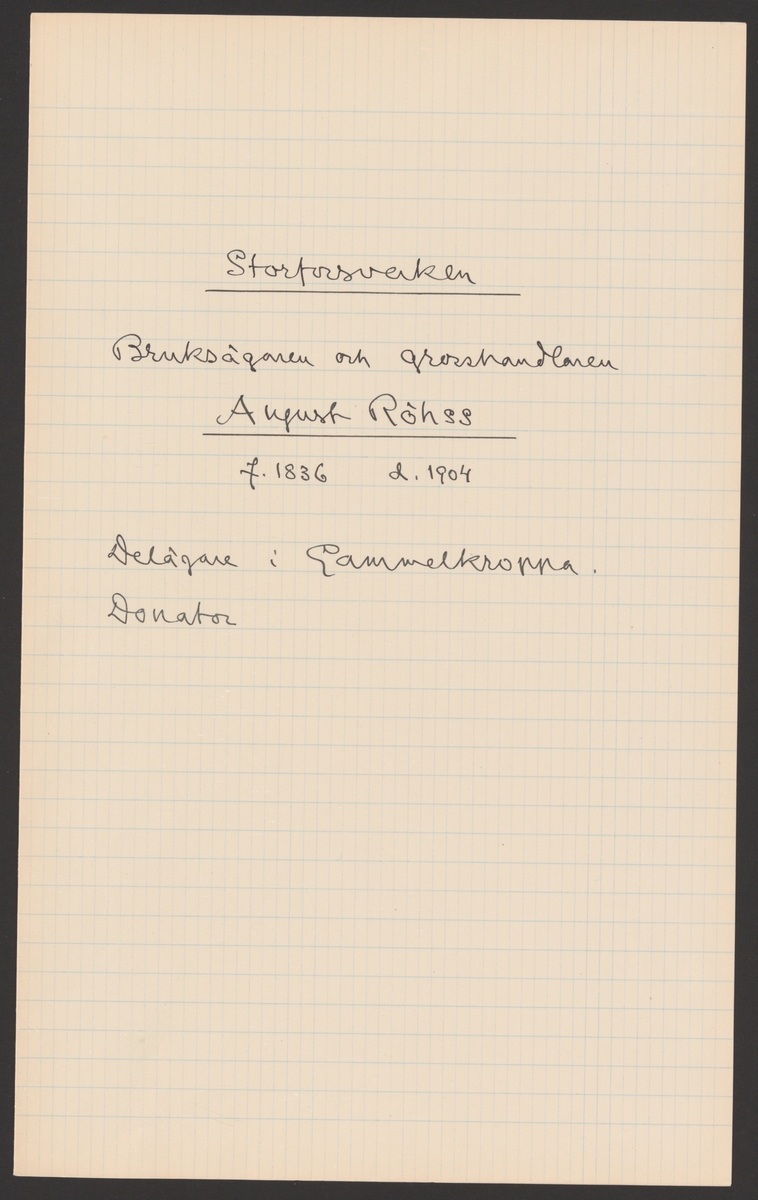 Storforsverken
Bruksägaren och grosshandlaren
August Röhss
f. 1836 d. 1904
Delägare i Gammelkroppa.
Donator